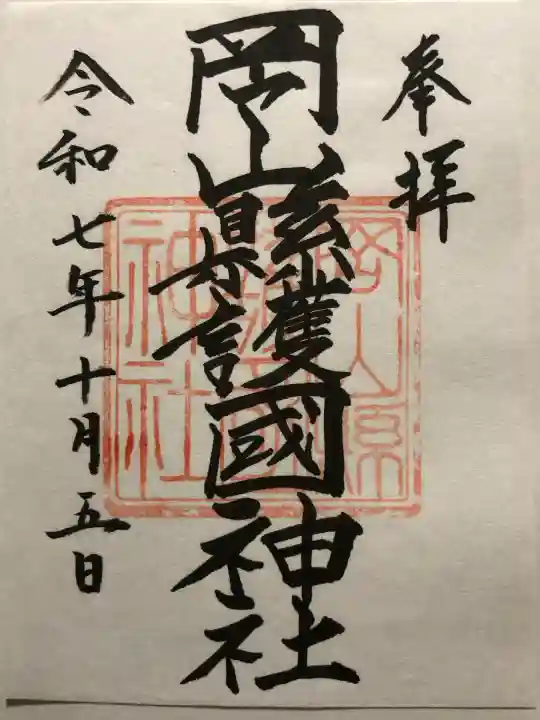 奉拝
岡山縣護國神社
令和七年十月五日
岡山県
護國
神社